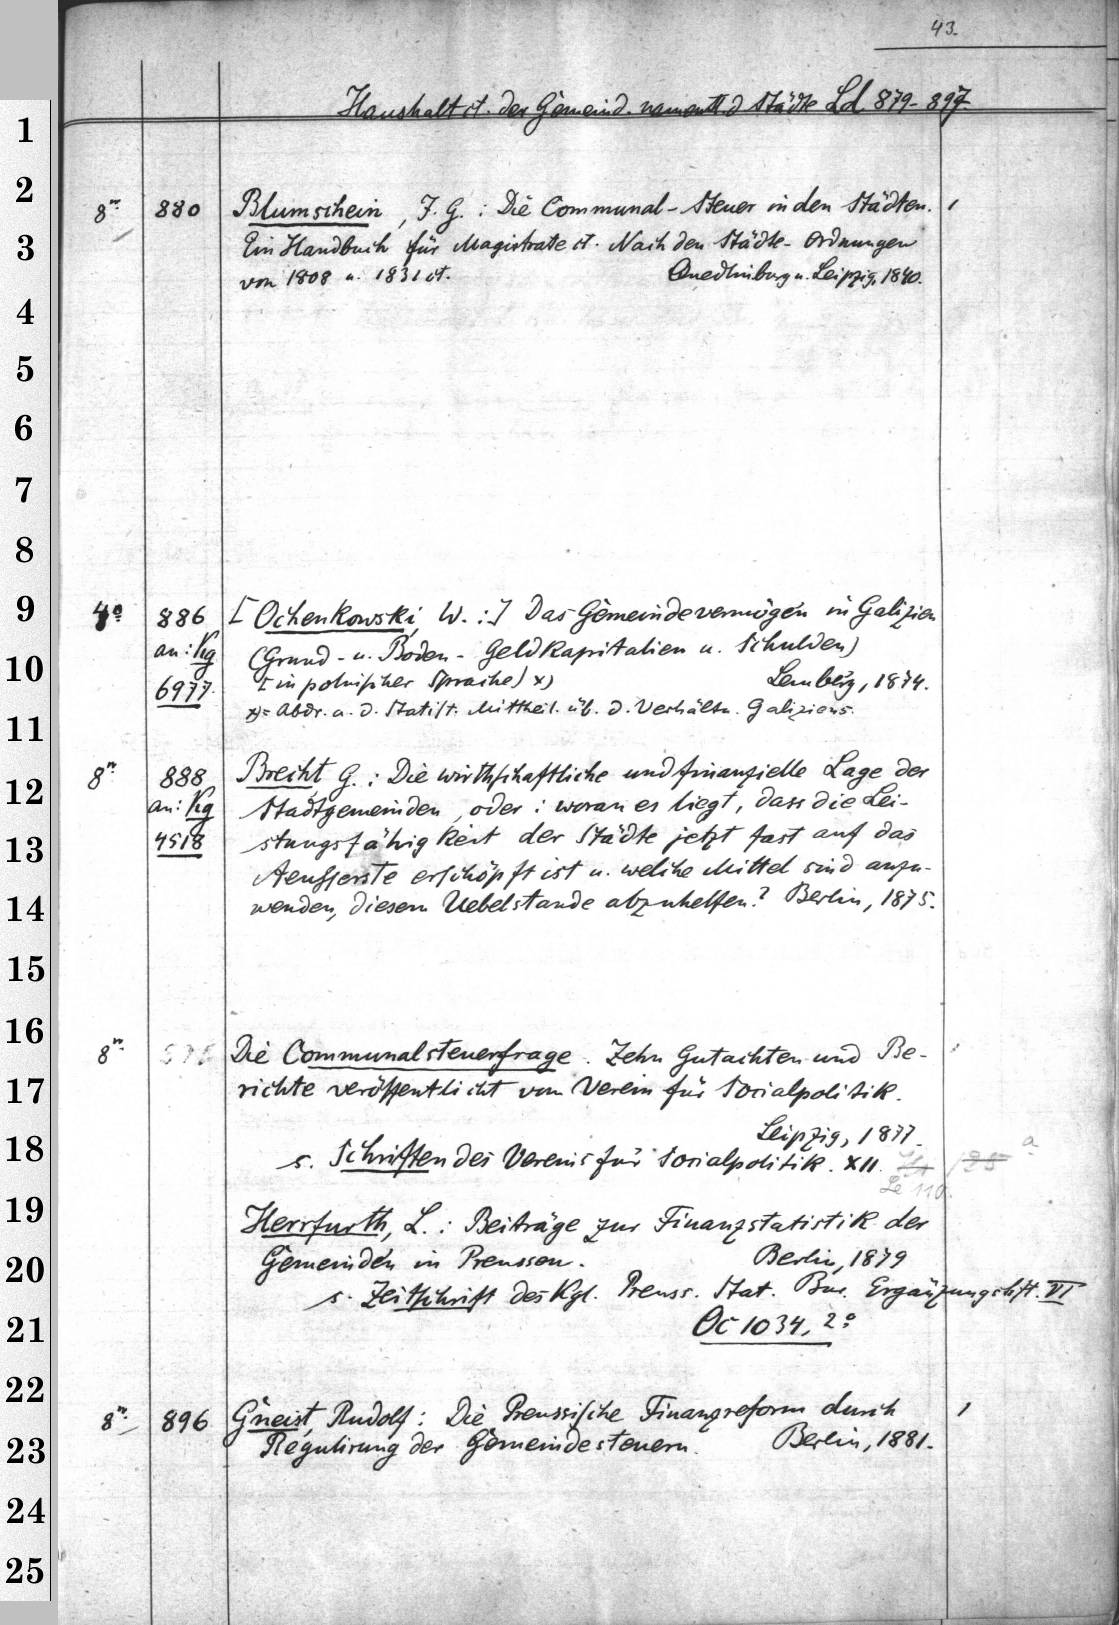 43.
Haushalt ct. der Gemeind. namentl. d Städte Ld 879-897
1
2
8° 880 Blumschein, J. G. : Die Communal-Steuer in den Städten.
3
Ein Handbuch für Magistrate ct. Nach den Städte-Ordnungen
von 1808 u. 1831 ct. Quedlinburg u. Leipzig, 1840.
4
5
6
7
8
9
4° 886 [Ochenkowski, W. :] Das Gemeindevermögen in Galizien
an: Kg (Grund- u. Boden- Geldkapitalien u. Schulden)
10
6977. [in polnischer Sprache) x) Lemberg, 1874.
x)= Abdr. a. d. Statist. Mittheil. üb. d. Verhältn. Galiziens.
11
8° 888 Brecht, G. : Die wirthschaftliche und finanzielle Lage der
12
an: Kg Stadtgemeinden, oder : woran es liegt, dass die Lei-
4518 stungsfähigkeit der Städte jetzt fast auf das
13
Aeusserste erschöpft ist u. welche Mittel sind anzu-
14
wenden, diesem Uebelstande abzuhelfen? Berlin, 1875.
15
16
8° Die Communalsteuerfrage. Zehn Gutachten und Be-
17
richte veröffentlicht vom Verein für Socialpolitik.
Leipzig, 1877.
18
s. Schriften des Vereins für Socialpolitik. XII.
Le 110. a
19
Herrfurth, L. : Beiträge zur Finanzstatistik der
20
Gemeinden in Preussen. Berlin, 1879
s. Zeitschrift des Kgl. Preuss. Stat. Bur. Ergänzungshft. VI
21
Oc 1034, 2°
22
8° 896 Gneist, Rudolf : Die Preussische Finanzreform durch
23
Regulirung der Gemeindesteuern. Berlin, 1881.
24
25